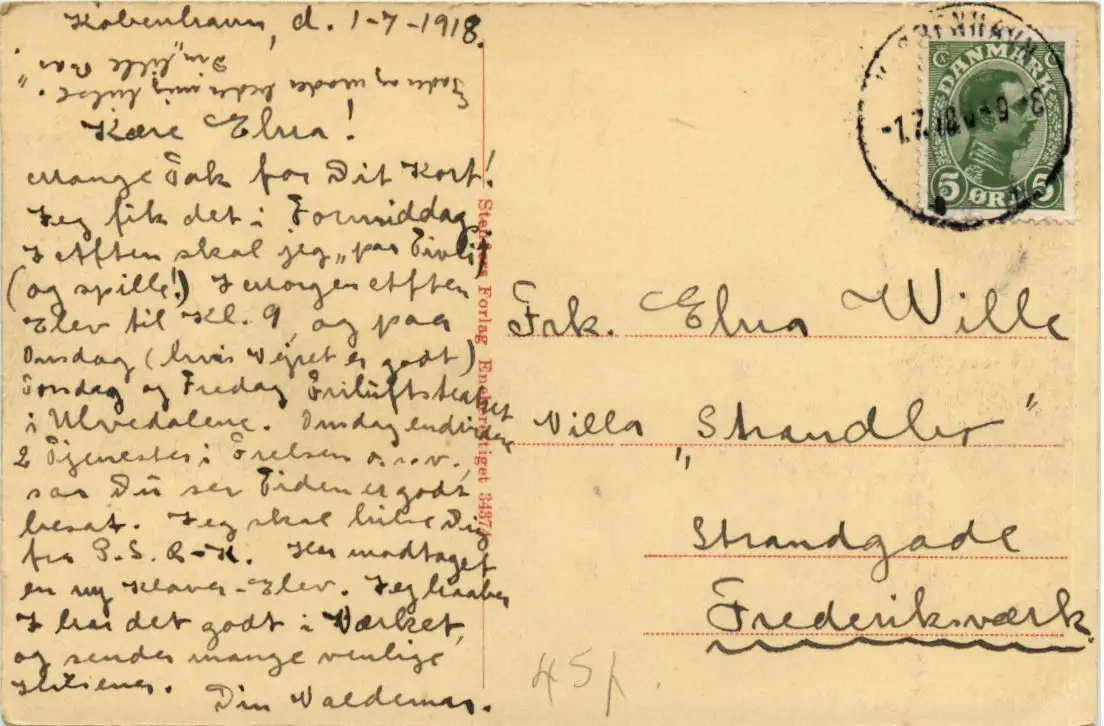 København, d. 1-7-1918.
Fader og moder beder mig hilse.
Din „lille Bas"
Kære Elna!
mange Tak for Dit Kort!
Jeg fik det i Formiddag,
I Aften skal jeg „paa Tivoli"
(og spille!) I morgen Aften
Elev til Kl. 9, og paa
Onsdag (hvis Vejret er godt)
Torsdag og Fredag Friluftsteatret
i Ulvedalene. Onsdag endvidere
2 Tjenester i Frelsen o.s.v.,
saa Du ser Tiden er godt
besat. Jeg skal hilse Dig
fra P.S. R-K. Har modtaget
en ny Klaver-Elev. Jeg haaber
I har det godt i Værket,
og sender mange venlige
Hilsener.
Din Valdemar.
Stenders Forlag Eneberettiget 34374
KØBENHAVN
1.7.18
DANMARK
5 ØRE 5
Frk. Elna Wille
Villa „Strandbo"
Strandgade
Frederiksværk.
45/